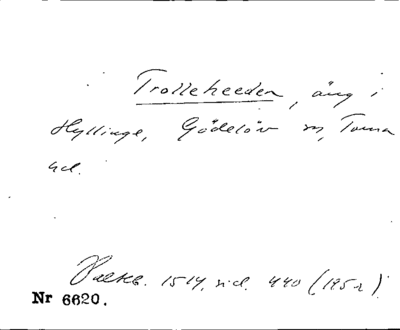 Trolleheeden, äng i
Hyllinge, Gödelöv sn, Torna
hd.
Palteb. 1514, sid. 440 (195r)
Nr 6620.